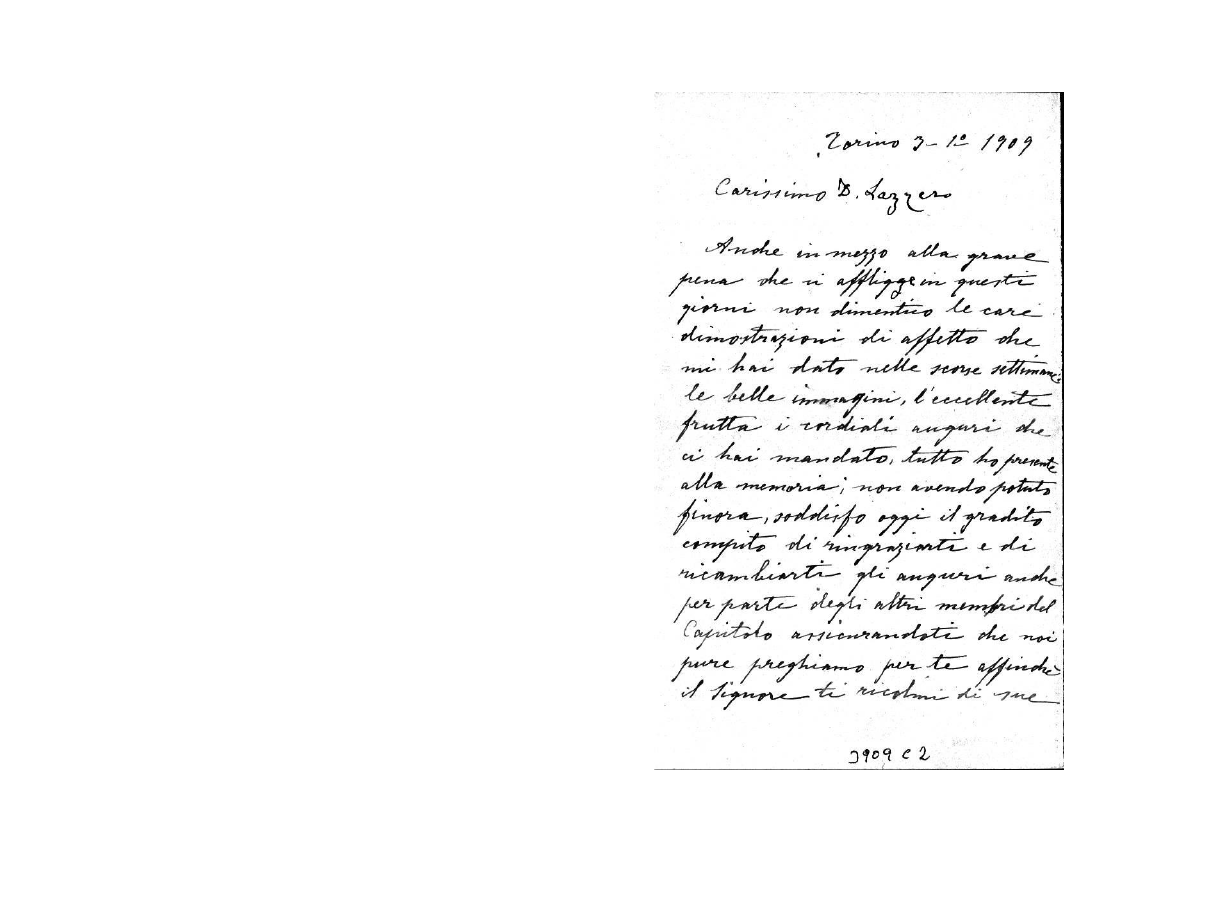 Torino 3-1º 1909
Carissimo D. Lazzero
Anche in mezzo alla grave
pena che ci affligge in questi
giorni non dimentico le care
dimostrazioni di affetto che
mi hai dato nelle scorse settimane:
le belle immagini, l'eccellente
frutta i cordiali auguri che
ci hai mandato, tutto ho presente
alla memoria; non avendo potuto
finora, soddisfo oggi il gradito
compito di ringraziarti e di
ricambiarti gli auguri anche
per parte degli altri membri del
Capitolo assicurandoti che noi
pure preghiamo per te affinchè
il Signore ti ricolmi di sue
3909 C 2